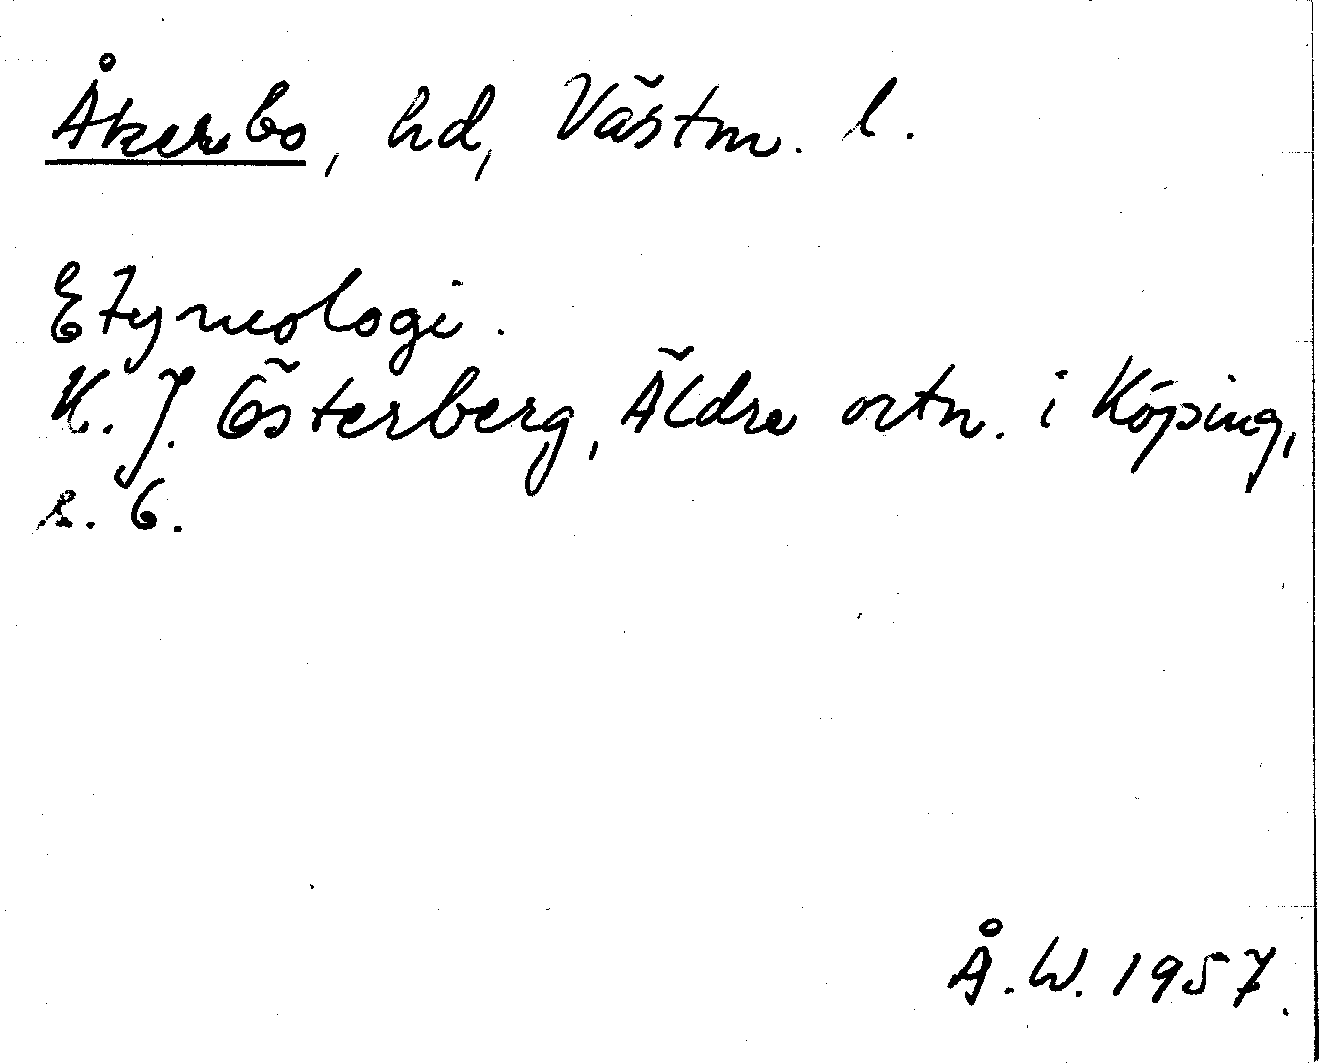 Åkerbo, hd, Västm. l.
Etymologi.
K. J. Österberg, Äldre ortn. i Köping,
s. 6.
Å. W. 1957.